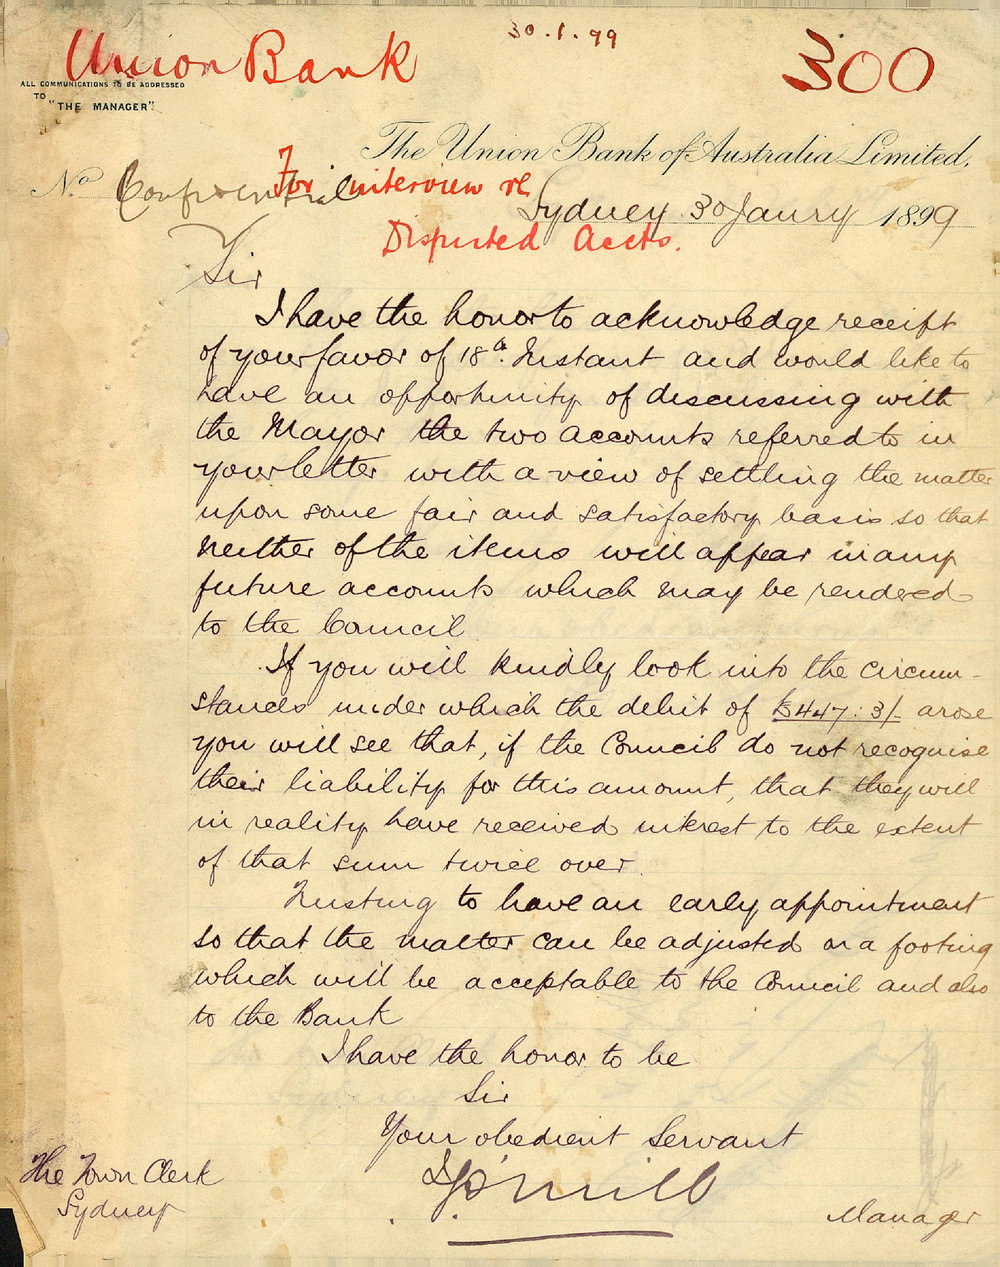 30.1.99
Union Bank
300
ALL COMMUNICATIONS TO BE ADDRESSED
TO "THE MANAGER".
The Union Bank of Australia Limited.
No Confidential
For interview re
Sydney 30 Janry 1899
Disputed Accts.
Sir
I have the honor to acknowledge receipt
of your favor of 18th Instant and would like to
have an opportunity of discussing with
the Mayor the two accounts referred to in
your letter with a view of settling the matter
upon some fair and satisfactory basis so that
neither of the items will appear in any
future accounts which may be rendered
to the Council.
If you will kindly look into the circum-
stances under which the debit of £3447:3/- arose
you will see that, if the Council do not recognise
their liability for this amount, that they will
in reality have received interest to the extent
of that sum twice over.
Trusting to have an early appointment
so that the matter can be adjusted on a footing
which will be acceptable to the Council and also
to the Bank
I have the honor to be
Sir
Your obedient Servant
Manager
The Town Clerk
Sydney